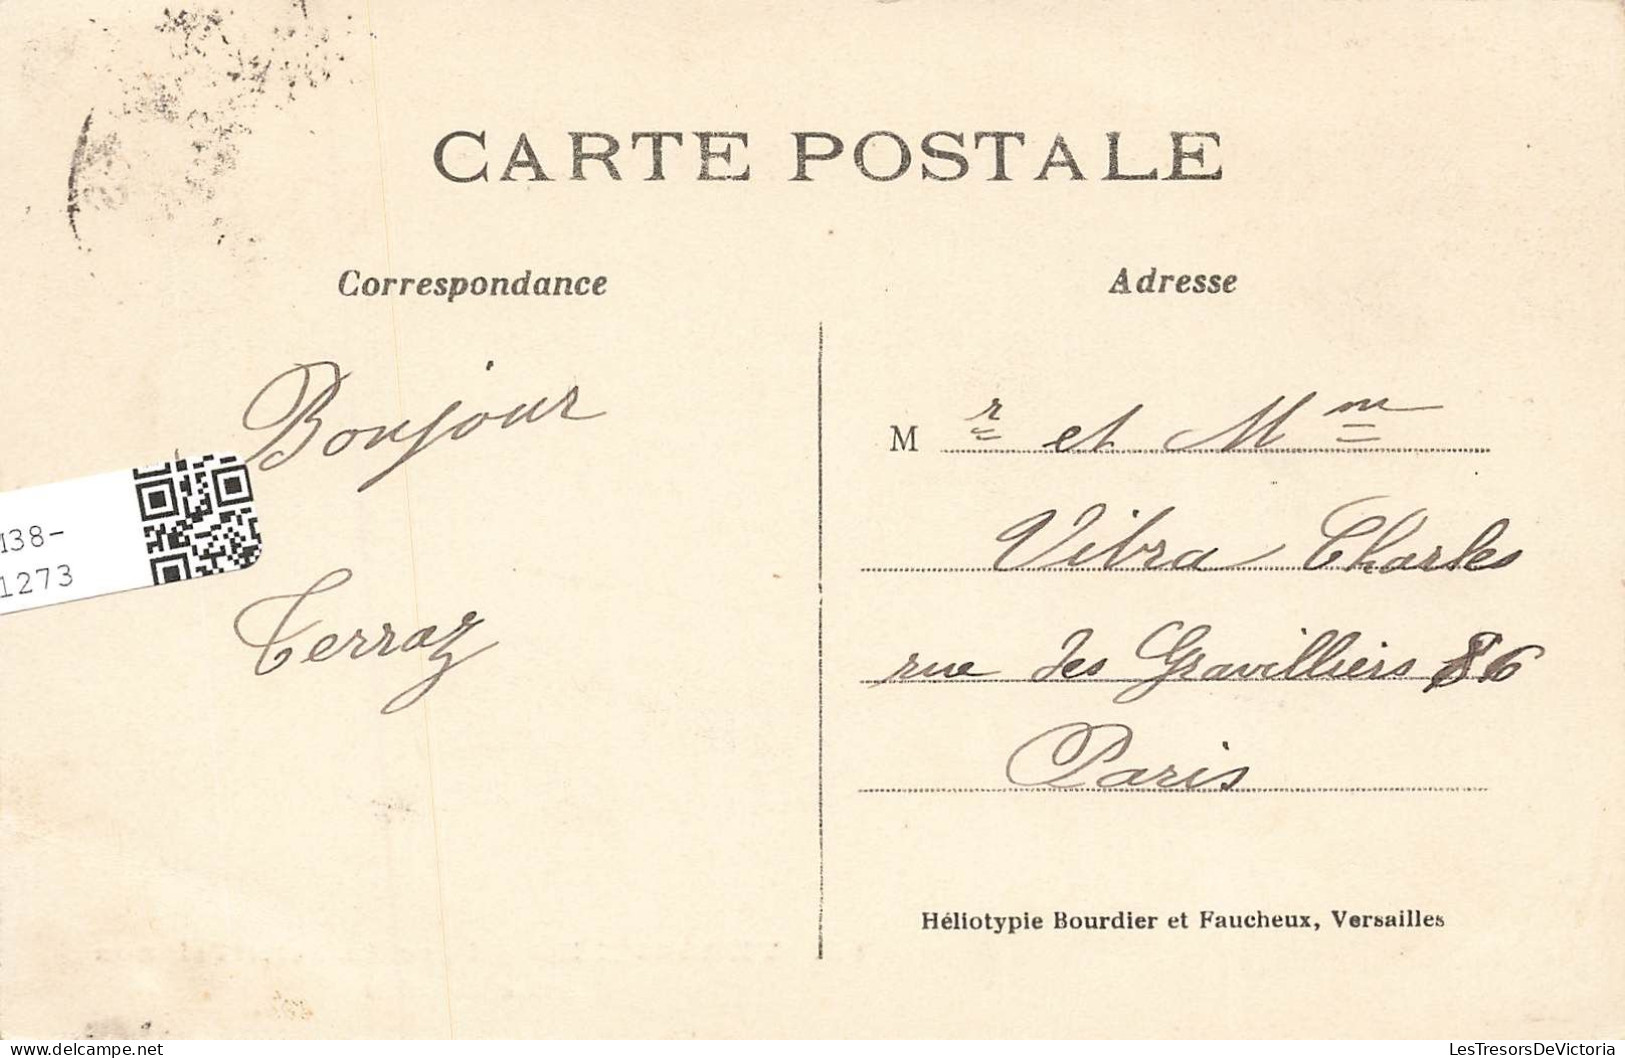 CARTE POSTALE
Correspondance
Bonjour
Terraz
Adresse
M r et Mm
Vibra Charles
rue des Gravilliers 86
Paris
Héliotypie Bourdier et Faucheux, Versailles
M38-
1273
LesTresorsDeVictoria